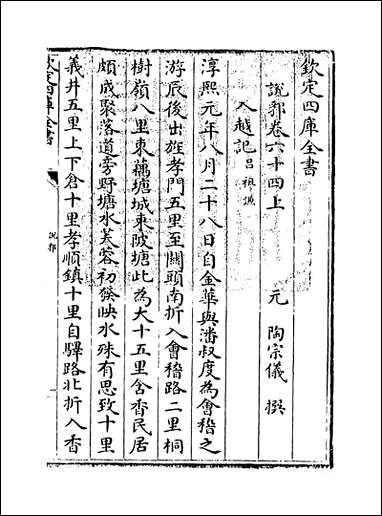 欽定四庫全書
說郛卷六十四上
元 陶宗儀 撰
入越記呂祖謙
淳熙元年八月二十八日自金華與潘叔度為會稽之
游辰後出旌孝門五里至關頭南折入會稽路二里桐
樹嶺八里東藕塘城東陂塘此為大十五里含香民居
頗成聚落道旁野塘水芙蓉初發映水殊有思致十里
義井五里上下倉十里孝順鎮十里自驛路北折入香
欽定四庫全書
說郛